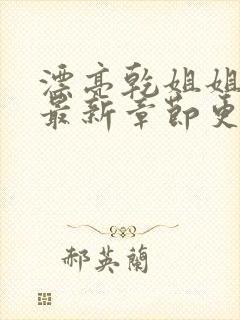 漂亮乾姐姐
最新章節更
郝英蘭